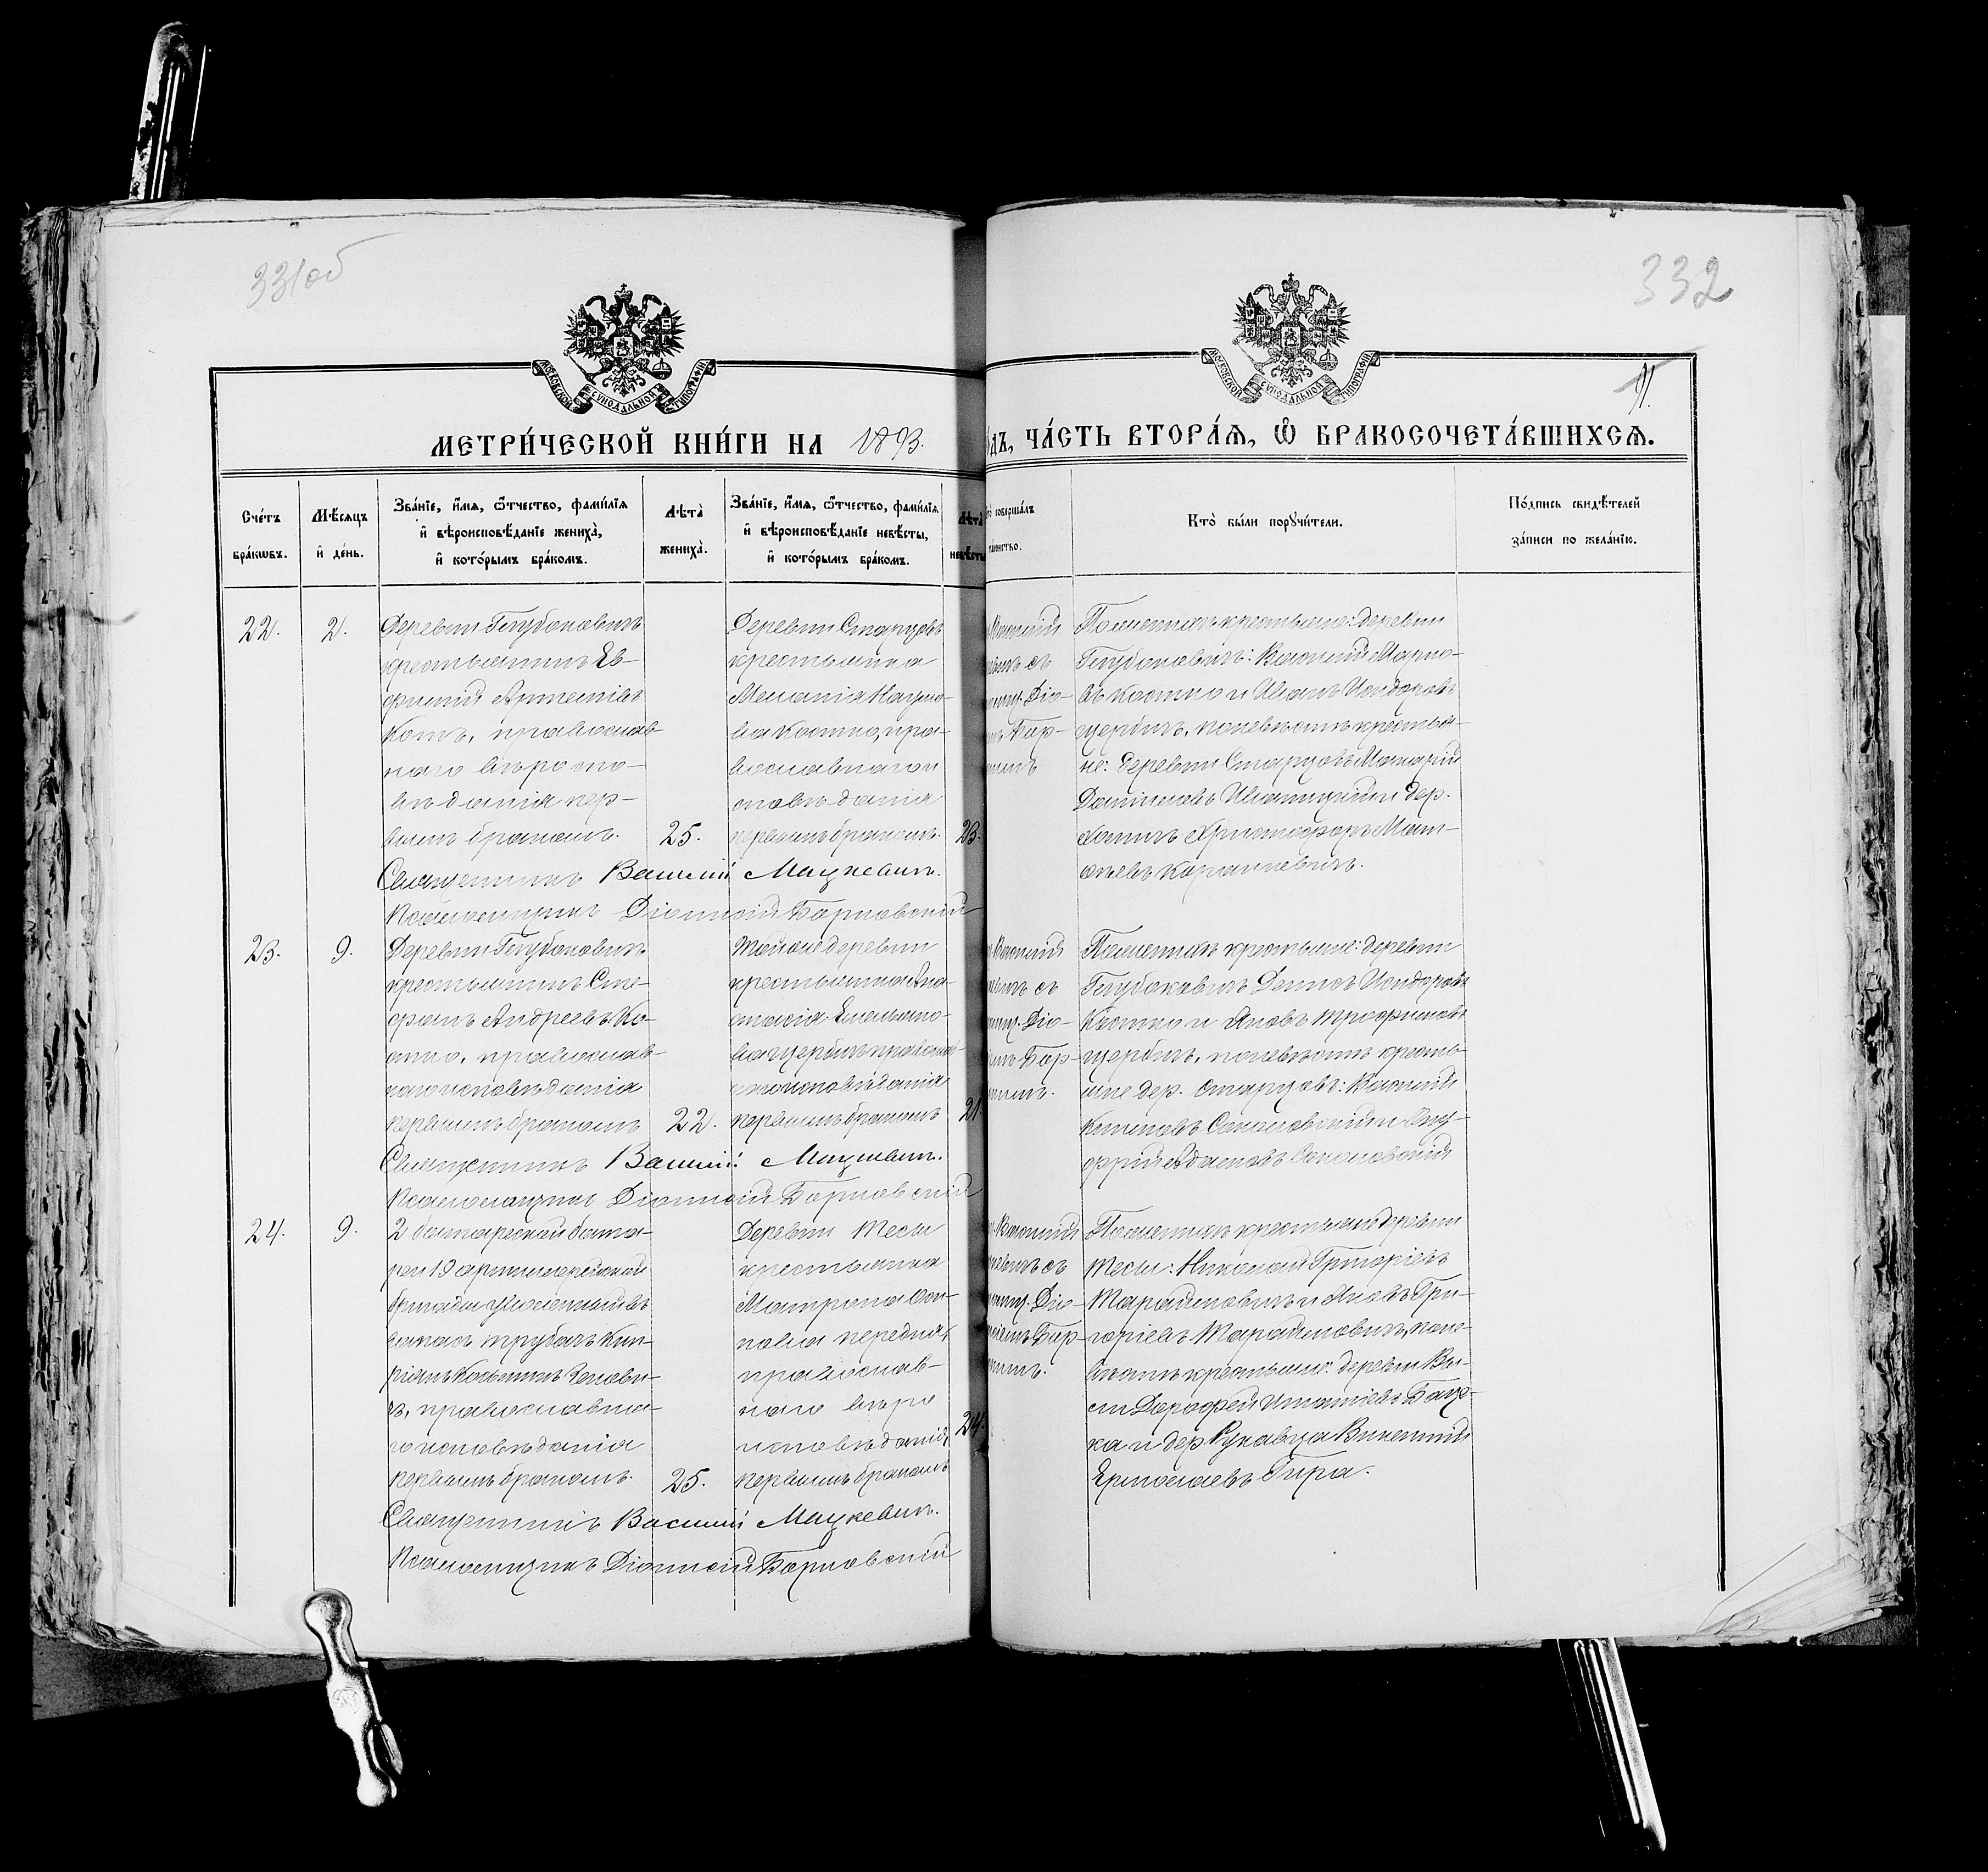 331об
332
11.
МОСКОВСКОЙ СУНОДАЛЬНОЙ ТУПОГРАФІИ
МОСКОВСКОЙ СУНОДАЛЬНОЙ ТУПОГРАФІИ
МЕТРИ́ЧЕСКОЙ КНИ́ГИ НА 1893.
ДЪ, ЧА́СТЬ ВТОРА́Ѧ, Ѽ БРАКОСОЧЕТА́ВШИХСѦ.
Сче́тъ бра́кѡвъ.
Мѣ́сѧцъ и҆ де́нь.
Зва́нїе, и҆́мѧ, ѻ҆́тчество, фами́лїѧ и҆ вѣроисповѣ́данїе жениха̀, и҆ кото́рымъ бра́комъ.
Лѣта̀ жениха̀.
Зва́нїе, и҆́мѧ, ѻ҆́тчество, фами́лїѧ и҆ вѣроисповѣ́данїе невѣ́сты, и҆ кото́рымъ бра́комъ.
Лѣта̀ невѣ́сты
соверша́лъ
Кто̀ бы́ли порꙋчи́тели.
По́дпись свидѣ́телей за́писи по жела́нїю.
22.
2.
Деревни Глубоковичъ
крестьянинъ Ев-
фимій Артеміевъ
Котъ, православ-
наго вѣроспо-
вѣданія пер-
вымъ бракомъ.
25.
Деревни Старцовъ
крестьянка
Меланія Наумо-
ва Костко, пра-
вославнаго и
сповѣданія
первымъ бракомъ.
23.
Василій
съ
Діо-
Бар-
По женихѣ крестьяне: деревни
Глубоковичъ: Василій Марко-
въ Костко и Иванъ Исидоровъ
Щербичъ, по невѣстѣ крестья-
не: деревни Старцовъ Макарій
Даниловъ Игнатицкій и дер.
Христофоръ Мат-
ѳѣевъ
Священникъ Василій Мацкевичъ.
Псаломщикъ Діонисій Барновскій
23.
9.
Деревни Глубоковичъ
крестьянинъ Сте-
фанъ Андреевъ Ко-
стко, православ-
наго исповѣданія
первымъ бракомъ
22.
Той же деревни
крестьянка Ана-
стасія Емельяно-
ва Щербичъ православ-
наго исповѣданія
первымъ бракомъ
21.
Василій
съ
Діо-
Бар-
По женихѣ крестьяне: деревни
Глубоковичъ Денисъ Исидоровъ
Костко и Яковъ Трофимовъ
Щербичъ, по невѣстѣ кресть-
яне дер. Старцовъ: Василій
Климовъ Сакаловскій и Ону-
фрій Адамовъ Сакаловскій
Священникъ Василій Мацкевичъ.
Псаломщикъ Діонисій Барновскій
24.
9.
2 батарейной бата-
реи 19 артиллерійской
бригады уволенный въ
запасъ трубачъ Кип-
ріанъ Косьминъ
православна-
го исповѣданія
первымъ бракомъ.
25.
Деревни Тесы
крестьянка
Матрона Оси-
пова Передня,
православ-
наго вѣро
исповѣданія,
первымъ бракомъ
24.
Василій
съ
Діо-
Бар-
По женихѣ крестьяне деревни
Тесы: Николай Григоріевъ
Тарайковичъ и Яковъ Гри-
горіевъ Тарайковичъ, по не-
вѣстѣ крестьяне: деревни Вы-
Дорофей Игнатіевъ Баце-
ка и дер Рукавца Викентій
Ермолаевъ Гира.
Священникъ Василій Мацкевичъ.
Псаломщикъ Діонисій Барновскій